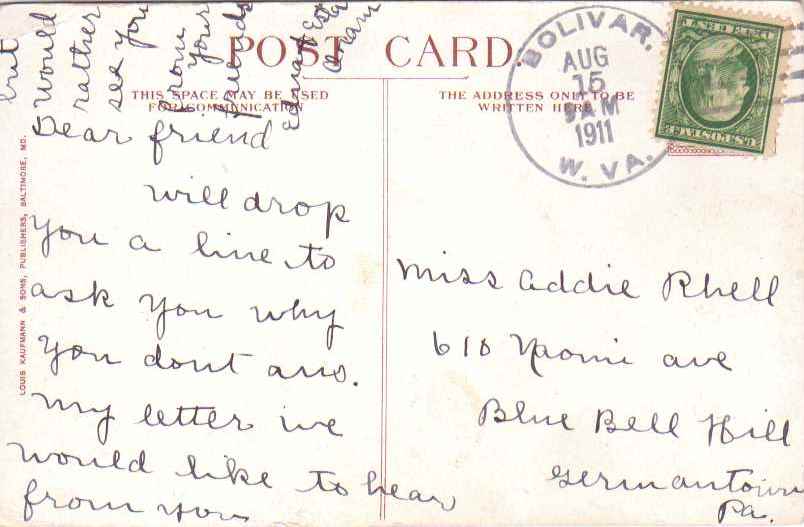 POST CARD.
THIS SPACE MAY BE USED
FOR COMMUNICATION
THE ADDRESS ONLY TO BE
WRITTEN HERE
LOUIS KAUFMANN & SONS, PUBLISHERS, BALTIMORE, MD.
BOLIVAR,
AUG
15
AM
1911
W. VA.
U.S. POSTAGE
Dear friend
will drop
you a line to
ask you why
you dont ans.
my letter we
would like to hear
from you
but
would
rather
see you
from
your
friends
Edna
Miss Addie Rhell
610 Naomi ave
Blue Bell Hill
Germantown
Pa.